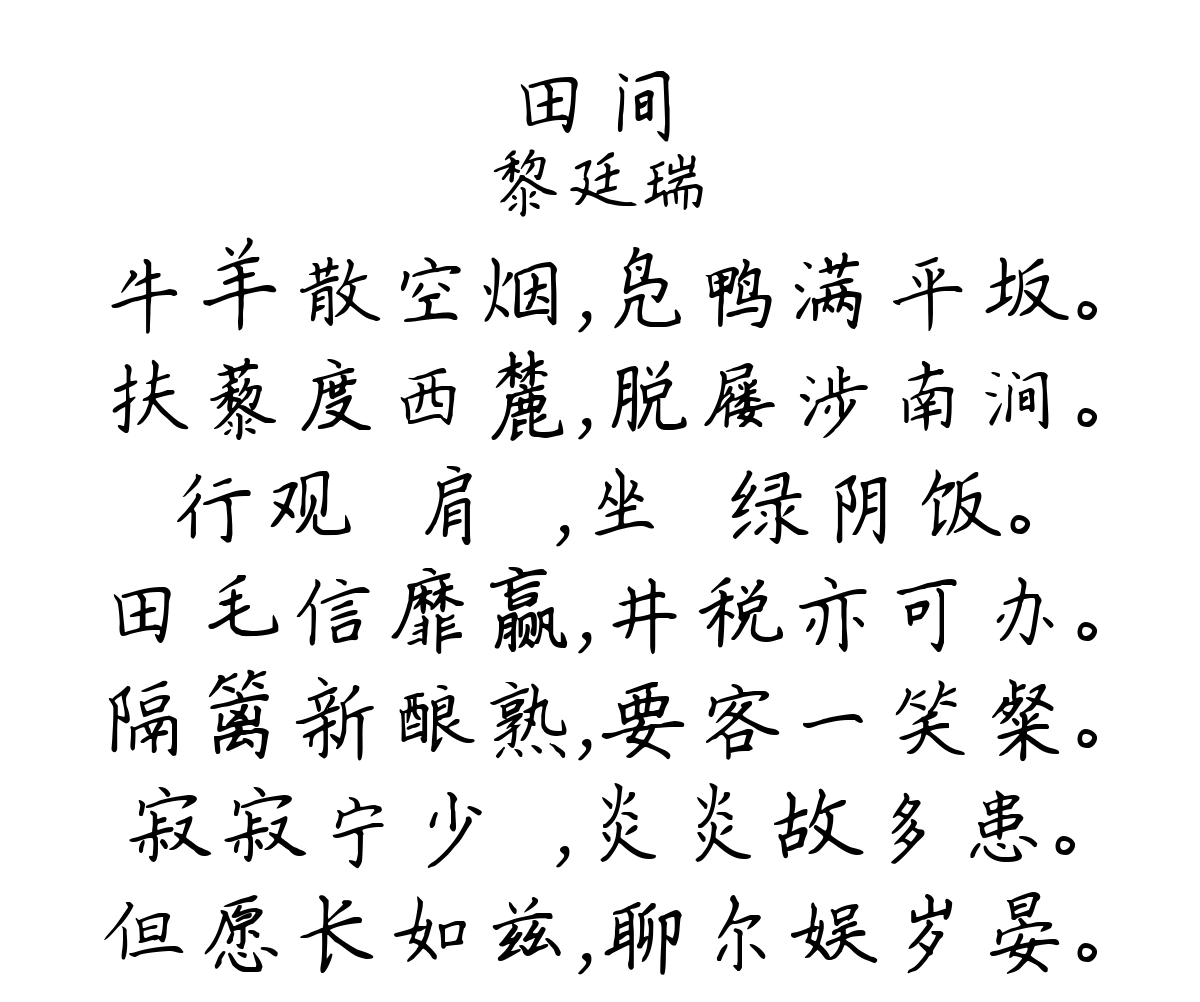 田间
黎廷瑞
牛羊散空烟,凫鸭满平坂。
扶藜度西麓,脱屦涉南涧。
行观 肩 ,坐 绿阴饭。
田毛信靡赢,井税亦可办。
隔篱新酿熟,要客一笑粲。
寂寂宁少 ,炎炎故多患。
但愿长如兹,聊尔娱岁晏。